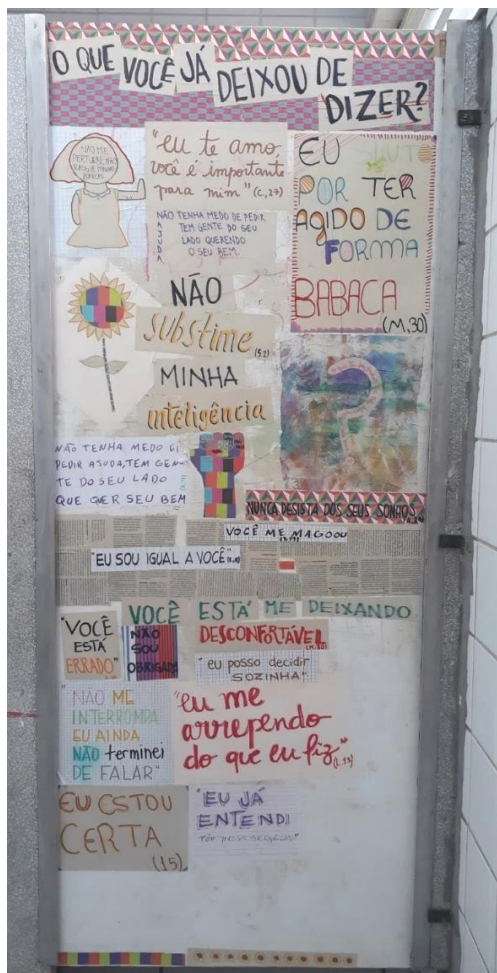 O QUE VOCÊ JÁ DEIXOU DE DIZER?
NÃO ME
"eu te amo,
você é importante
para mim" (C,27)
NÃO TENHA MEDO DE PEDIR
AJUDA
TEM GENTE DO SEU
LADO QUERENDO
O SEU BEM.
EU
POR TER
AGIDO DE
FORMA
BABACA
(M,30)
NÃO
substime
MINHA
inteligência
?
NÃO TENHA MEDO
PEDIR AJUDA, TEM GEN-
TE DO SEU LADO
QUE QUER SEU BEM
NUNCA DESISTA DOS SEUS SONHOS
VOCÊ ME MAGOOU
"EU SOU IGUAL A VOCÊ"
VOCÊ ESTÁ ME DEIXANDO
DESCONFORTÁVEL
"VOCÊ
ESTÁ
ERRADO"
NÃO
SOU
OBRIGADA
"eu posso decidir
SOZINHA"
"NÃO ME
INTERROMPA
EU AINDA
NÃO terminei
DE FALAR"
"eu me
arrependo
do que eu fiz"
EU ESTOU
CERTA
(15)
"EU JÁ
ENTENDI